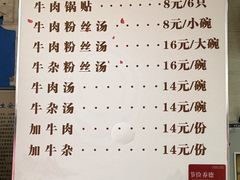 牛肉锅贴······8元/6只
牛肉粉丝汤·····8元/小碗
牛肉粉丝汤·····16元/大碗
牛杂粉丝汤·····16元/碗
牛肉汤·······14元/碗
牛杂汤·······14元/碗
加牛肉·······14元/份
加牛杂·······14元/份
节俭养德